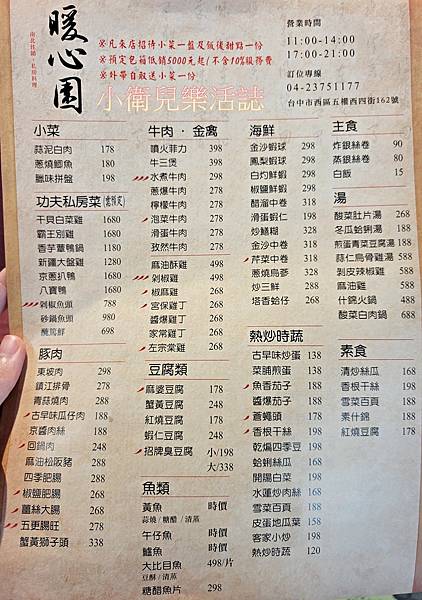 暖心園
南北往饌‧私房料理
※凡來店招待小菜一盤及飯後甜點一份
※預定包箱低銷5000元起/不含10%服務費
※外帶自取送小菜一份
小衛兒樂活誌
營業時間
11:00-14:00
17:00-21:00
訂位專線
04-23751177
台中市西區五權西四街162號
小菜
蒜泥白肉 178
蔥燒鯽魚 180
臘味拼盤 198
功夫私房菜(需預定)
干貝白菜雞 1680
霸王別雞 1680
香芋蕈鴨鍋 1180
新疆大盤雞 1180
京蔥扒鴨 1180
八寶鴨 1680
剁椒魚頭 788
砂鍋魚頭 980
醃篤鮮 698
豚肉
東坡肉 298
鎮江排骨 278
青蒜燒肉 288
古早味瓜仔肉 188
京醬肉絲 188
回鍋肉 248
麻油松阪豬 288
四季肥腸 288
椒鹽肥腸 268
薑絲大腸 268
五更腸旺 278
蟹黃獅子頭 338
牛肉‧金禽
噴火菲力 398
牛三煲 398
水煮牛肉 298
蔥爆牛肉 278
檸檬牛肉 278
泡菜牛肉 278
滑蛋牛肉 278
孜然牛肉 278
麻油酥雞 498
剁椒雞 498
椒麻雞 268
宮保丁雞 268
醬爆雞丁 268
家常雞丁 268
左宗棠雞 268
豆腐類
麻婆豆腐 178
蟹黃豆腐 248
紅燒豆腐 178
蝦仁豆腐 248
招牌臭豆腐 小/198
大/338
魚類
黃魚 時價
蒜燒/糖醋/清蒸
午仔魚 時價
鱸魚 時價
大比目魚 498/片
豆酥/清蒸
糖醋魚片 298
海鮮
金沙蝦球 288
鳳梨蝦球 288
白灼鮮蝦 288
椒鹽鮮蝦 288
醋溜中卷 318
滑蛋蝦仁 198
炒鱔糊 328
金沙中卷 318
芹菜中卷 318
蔥燒烏蔘 328
炒三鮮 288
塔香蛤仔 268
熱炒時蔬
古早味炒蛋 138
菜脯煎蛋 138
魚香茄子 188
醬爆茄子 188
蒼蠅頭 178
香根干絲 188
乾煸四季豆 198
蛤蜊絲瓜 188
開陽白菜 188
水蓮炒肉絲 168
雪菜百頁 188
皮蛋地瓜葉 158
客家小炒 198
熱炒時蔬 120
主食
炸銀絲卷 90
蒸銀絲卷 80
白飯 15
湯
酸菜肚片湯 268
冬瓜蛤蜊湯 188
煎蛋青菜豆腐湯 188
蒜仁烏骨雞湯 588
剝皮辣椒雞 588
麻油雞 588
什錦火鍋 488
酸菜白肉鍋 688
素食
清炒絲瓜 168
香根干絲 188
雪菜百頁 188
素什錦 188
紅燒豆腐 178